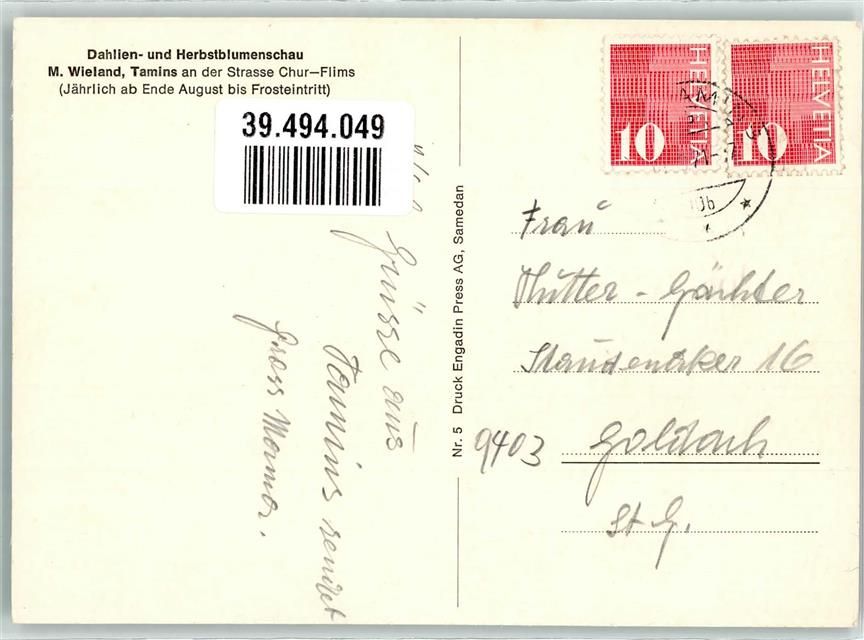 Dahlien- und Herbstblumenschau
M. Wieland, Tamins an der Strasse Chur—Flims
(Jährlich ab Ende August bis Frosteintritt)
39.494.049
Grüsse aus
Tamins sendet
Gross Mama.
Nr. 5 Druck Engadin Press AG, Samedan
HELVETIA
10
HELVETIA
10
Frau
Hutter - Gächter
Staudenäker 16
9403 Goldach
St G.